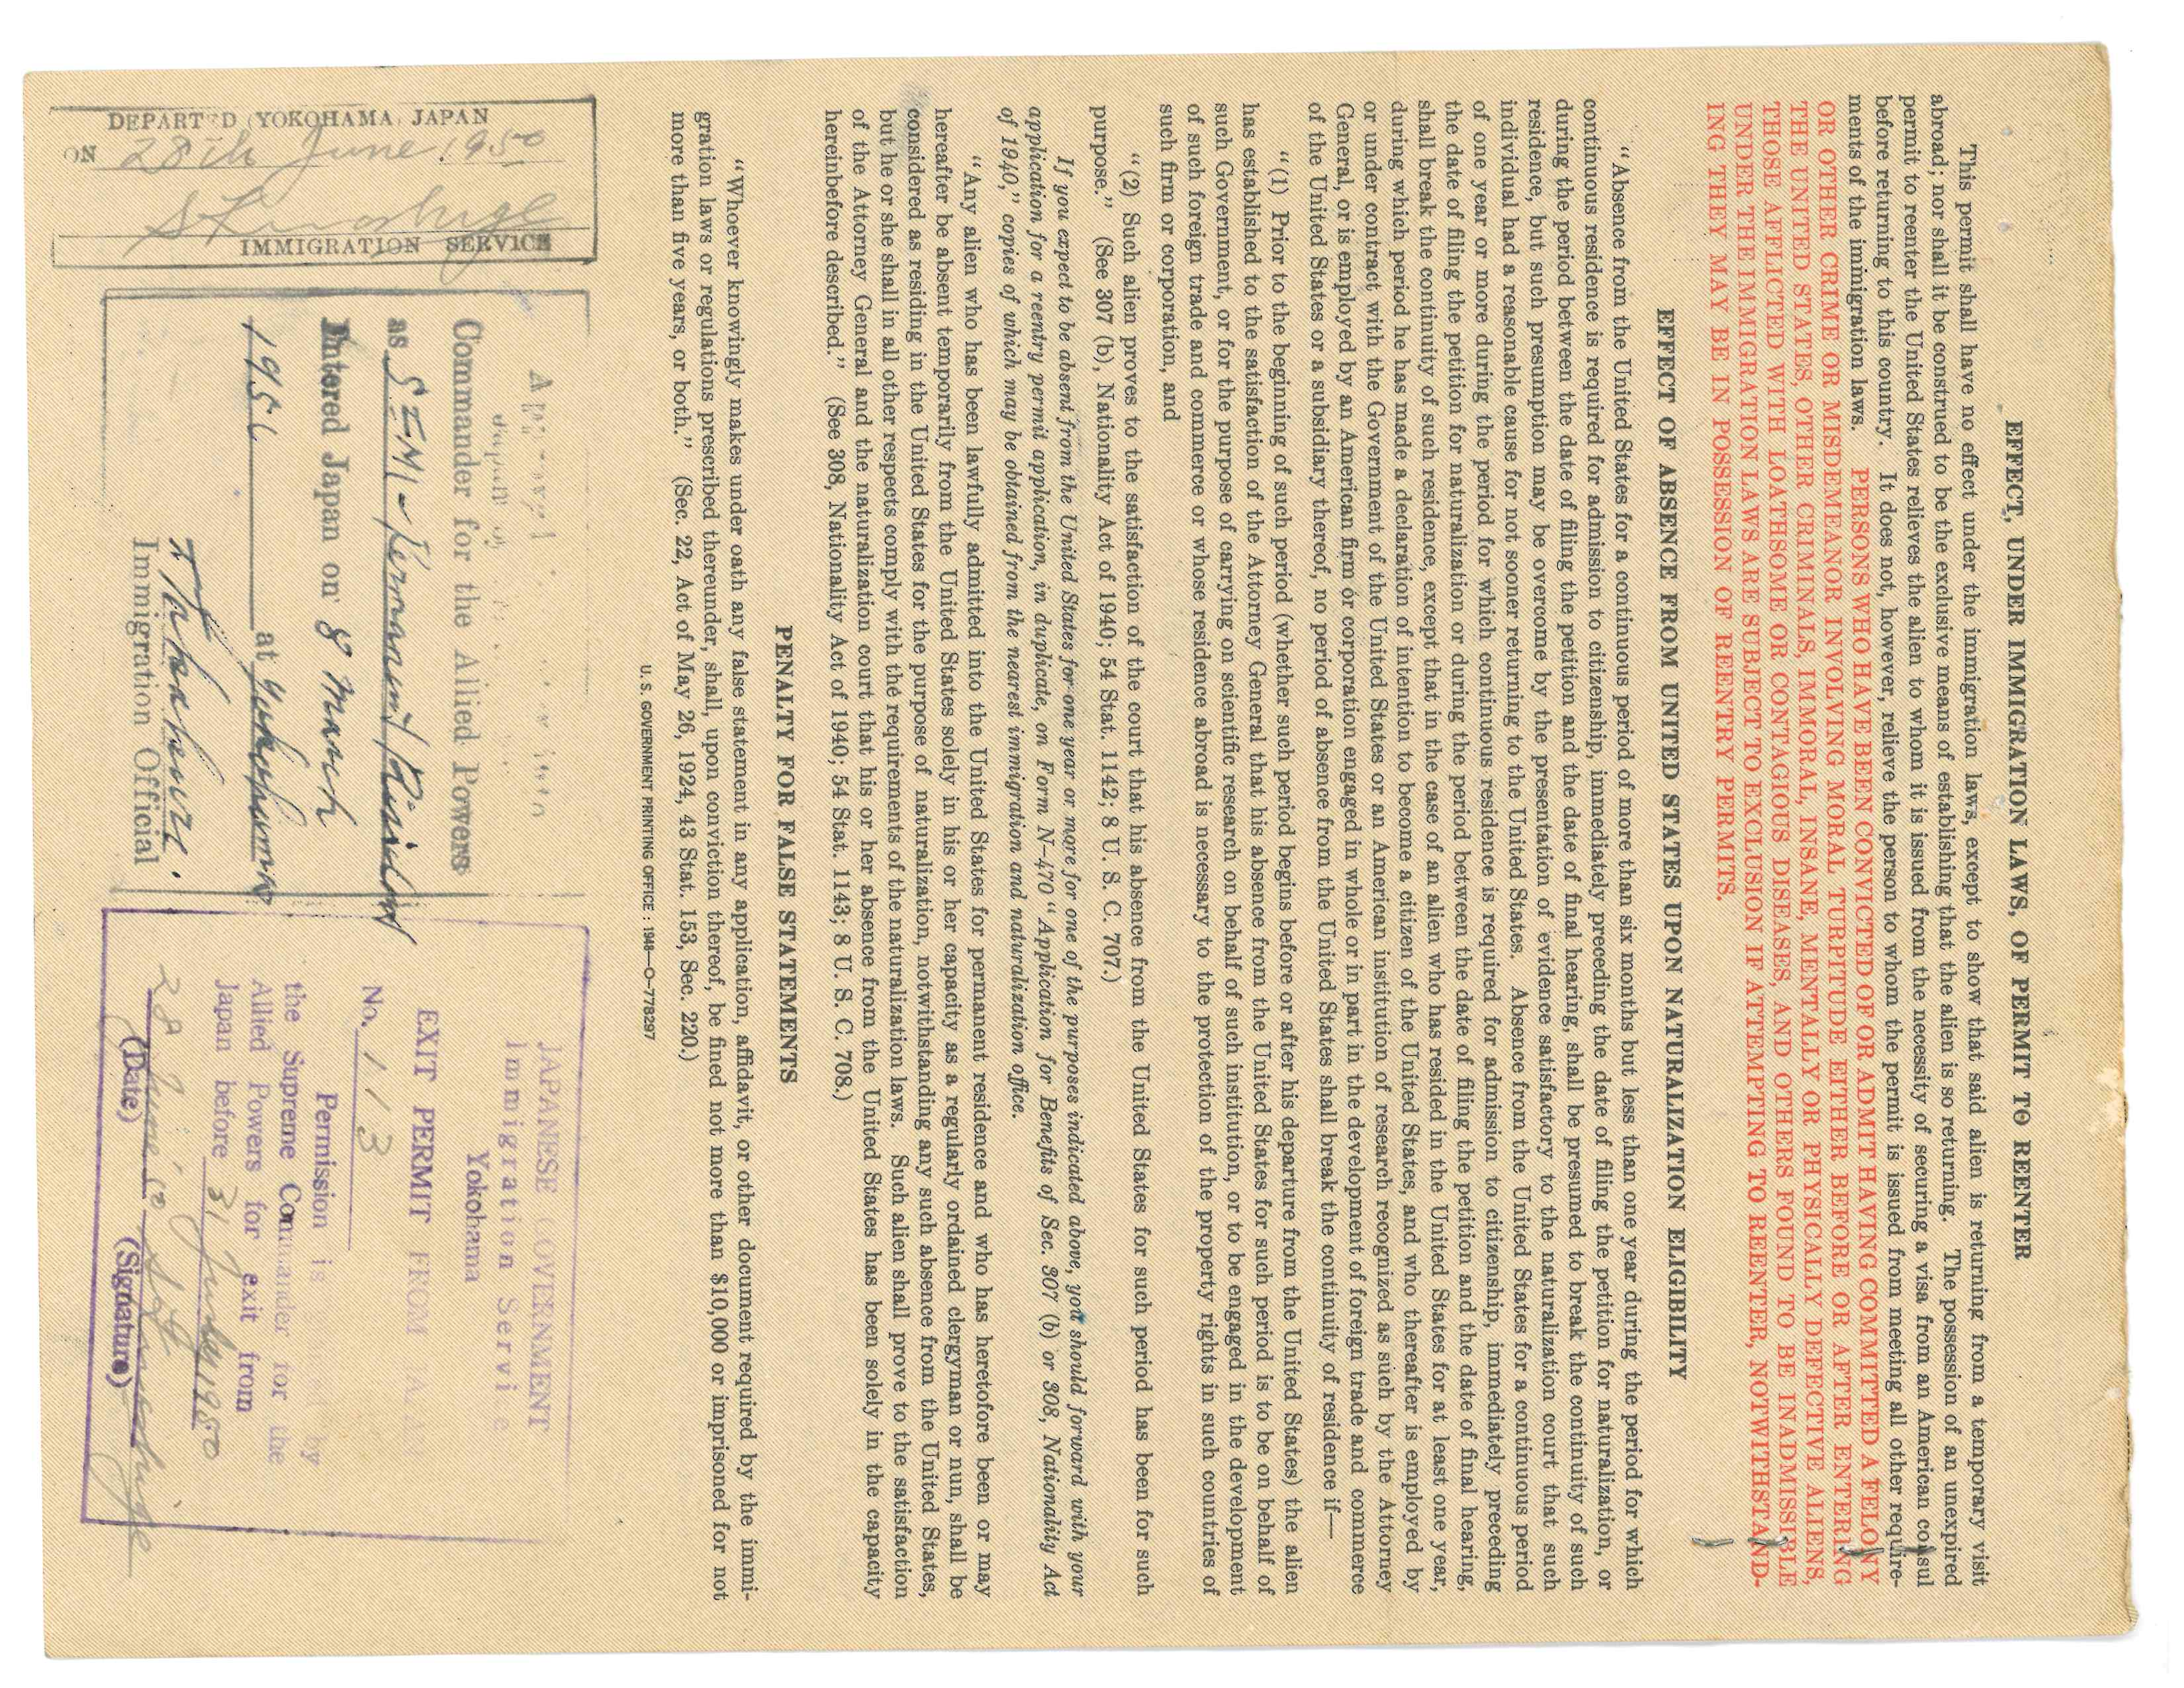 EFFECT, UNDER IMMIGRATION LAWS, OF PERMIT TO REENTER
This permit shall have no effect under the immigration laws, except to show that said alien is returning from a temporary visit
abroad; nor shall it be construed to be the exclusive means of establishing that the alien is so returning. The possession of an unexpired
permit to reenter the United States relieves the alien to whom it is issued from the necessity of securing a visa from an American consul
before returning to this country. It does not, however, relieve the person to whom the permit is issued from meeting all other require-
ments of the immigration laws. PERSONS WHO HAVE BEEN CONVICTED OF OR ADMIT HAVING COMMITTED A FELONY
OR OTHER CRIME OR MISDEMEANOR INVOLVING MORAL TURPITUDE EITHER BEFORE OR AFTER ENTERING
THE UNITED STATES, OTHER CRIMINALS, IMMORAL, INSANE, MENTALLY OR PHYSICALLY DEFECTIVE ALIENS,
THOSE AFFLICTED WITH LOATHSOME OR CONTAGIOUS DISEASES, AND OTHERS FOUND TO BE INADMISSIBLE
UNDER THE IMMIGRATION LAWS ARE SUBJECT TO EXCLUSION IF ATTEMPTING TO REENTER, NOTWITHSTAND-
ING THEY MAY BE IN POSSESSION OF REENTRY PERMITS.
EFFECT OF ABSENCE FROM UNITED STATES UPON NATURALIZATION ELIGIBILITY
"Absence from the United States for a continuous period of more than six months but less than one year during the period for which
continuous residence is required for admission to citizenship, immediately preceding the date of filing the petition for naturalization, or
during the period between the date of filing the petition and the date of final hearing, shall be presumed to break the continuity of such
residence, but such presumption may be overcome by the presentation of evidence satisfactory to the naturalization court that such
individual had a reasonable cause for not sooner returning to the United States. Absence from the United States for a continuous period
of one year or more during the period for which continuous residence is required for admission to citizenship, immediately preceding
the date of filing the petition for naturalization or during the period between the date of filing the petition and the date of final hearing,
shall break the continuity of such residence, except that in the case of an alien who has resided in the United States for at least one year,
during which period he has made a declaration of intention to become a citizen of the United States, and who thereafter is employed by
or under contract with the Government of the United States or an American institution of research recognized as such by the Attorney
General, or is employed by an American firm or corporation engaged in whole or in part in the development of foreign trade and commerce
of the United States or a subsidiary thereof, no period of absence from the United States shall break the continuity of residence if—
"(1) Prior to the beginning of such period (whether such period begins before or after his departure from the United States) the alien
has established to the satisfaction of the Attorney General that his absence from the United States for such period is to be on behalf of
such Government, or for the purpose of carrying on scientific research on behalf of such institution, or to be engaged in the development
of such foreign trade and commerce or whose residence abroad is necessary to the protection of the property rights in such countries of
such firm or corporation, and
"(2) Such alien proves to the satisfaction of the court that his absence from the United States for such period has been for such
purpose." (See 307 (b), Nationality Act of 1940; 54 Stat. 1142; 8 U. S. C. 707.)
If you expect to be absent from the United States for one year or more for one of the purposes indicated above, you should forward with your
application for a reentry permit application, in duplicate, on Form N-470 "Application for Benefits of Sec. 307 (b) or 308, Nationality Act
of 1940," copies of which may be obtained from the nearest immigration and naturalization office.
"Any alien who has been lawfully admitted into the United States for permanent residence and who has heretofore been or may
hereafter be absent temporarily from the United States solely in his or her capacity as a regularly ordained clergyman or nun, shall be
considered as residing in the United States for the purpose of naturalization, notwithstanding any such absence from the United States,
but he or she shall in all other respects comply with the requirements of the naturalization laws. Such alien shall prove to the satisfaction
of the Attorney General and the naturalization court that his or her absence from the United States has been solely in the capacity
hereinbefore described." (See 308, Nationality Act of 1940; 54 Stat. 1143; 8 U. S. C. 708.)
PENALTY FOR FALSE STATEMENTS
"Whoever knowingly makes under oath any false statement in any application, affidavit, or other document required by the immi-
gration laws or regulations prescribed thereunder, shall, upon conviction thereof, be fined not more than $10,000 or imprisoned for not
more than five years, or both." (Sec. 22, Act of May 26, 1924, 43 Stat. 153, Sec. 220.)
U. S. GOVERNMENT PRINTING OFFICE : 1948—O-778297
DEPARTED (YOKOHAMA, JAPAN
ON 28th June 1950
IMMIGRATION SERVICE
Japan by
Commander for the Allied Powers
as Permanent Resident
Entered Japan on 8 March
at Yokohama
Immigration Official
JAPANESE GOVERNMENT
Immigration Service
Yokohama
EXIT PERMIT FROM JAPAN
No. 113
Permission is by
the Supreme Commander for the
Allied Powers for exit from
Japan before 31 July 1950
28 June 50
(Date) (Signature)